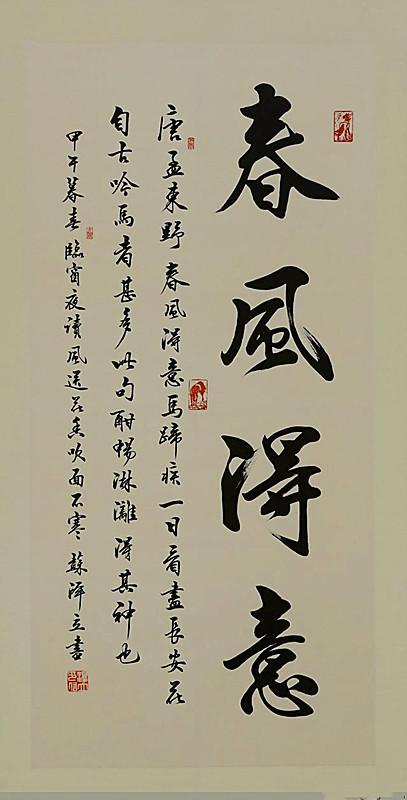 春風得意
唐孟東野春風得意馬蹄疾一日看盡長安花
自古吟馬者甚多此句酣暢淋漓得其神也
甲午暮春臨窗夜讀風送花香吹面不寒蘇澤立書